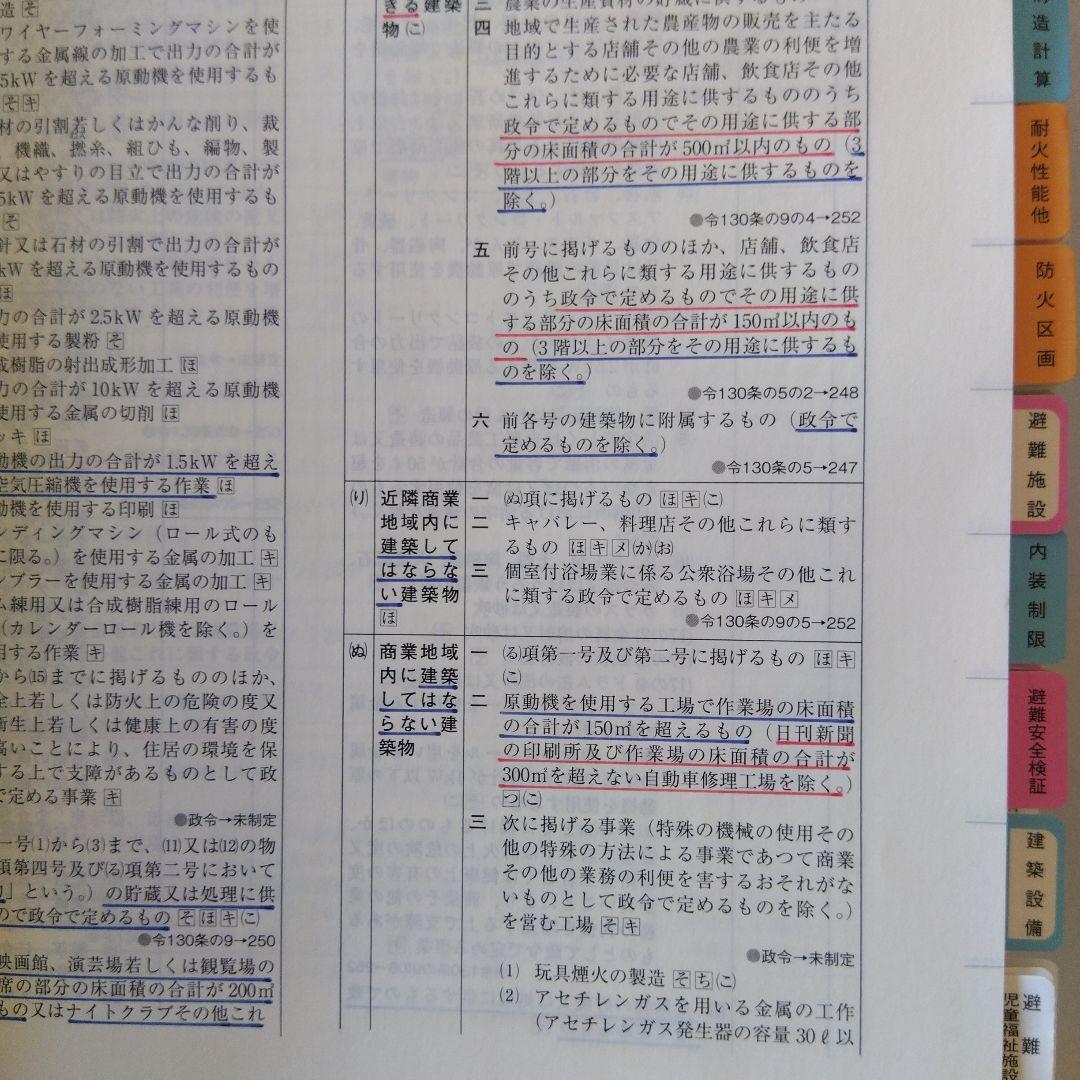 造 そ
ワイヤーフォーミングマシンを使
する金属線の加工で出力の合計が
5kW を超える原動機を使用するも
そ キ
材の引割若しくはかんな削り、裁
、機織、撚糸、組ひも、編物、製
又はやすりの目立で出力の合計が
5kW を超える原動機を使用するも
そ
針又は石材の引割で出力の合計が
kW を超える原動機を使用するもの
ほ
力の合計が 2.5kW を超える原動機
使用する製粉 そ
成樹脂の射出成形加工 ほ
力の合計が 10kW を超える原動機
使用する金属の切削 ほ
ッキ ほ
動機の出力の合計が 1.5kW を超え
空気圧縮機を使用する作業 ほ
動機を使用する印刷 ほ
ンディングマシン（ロール式のも
に限る。）を使用する金属の加工 キ
ンブラーを使用する金属の加工 キ
ム練用又は合成樹脂練用のロール
（カレンダーロール機を除く。）を
用する作業 キ
から⒂までに掲げるもののほか、
全上若しくは防火上の危険の度又
衛生上若しくは健康上の有害の度
高いことにより、住居の環境を保
する上で支障があるものとして政
で定める事業 キ
●政令→未制定
一号⑴から⑶まで、⑾又は⑿の物
項第四号及び(る)項第二号において
」という。）の貯蔵又は処理に供
ので政令で定めるもの そ ほ キ (こ)
●令130条の9→250
映画館、演芸場若しくは観覧場の
席の部分の床面積の合計が 200㎡
もの又はナイトクラブその他これ
きる建築
物 (こ)
三 農業の生産資材の貯蔵に供するもの
四 地域で生産された農産物の販売を主たる
目的とする店舗その他の農業の利便を増
進するために必要な店舗、飲食店その他
これらに類する用途に供するもののうち
政令で定めるものでその用途に供する部
分の床面積の合計が 500㎡以内のもの（3
階以上の部分をその用途に供するものを
除く。）
●令130条の9の4→252
五 前号に掲げるもののほか、店舗、飲食店
その他これらに類する用途に供するもの
のうち政令で定めるものでその用途に供
する部分の床面積の合計が 150㎡以内のも
の（3 階以上の部分をその用途に供するも
のを除く。）
●令130条の5の2→248
六 前各号の建築物に附属するもの（政令で
定めるものを除く。）
●令130条の5→247
(り) 近隣商業
地域内に
建築して
はならな
い建築物
ほ
一 (ぬ)項に掲げるもの ほ キ (こ)
二 キャバレー、料理店その他これらに類す
るもの ほ キ メ (か) (お)
三 個室付浴場業に係る公衆浴場その他これ
に類する政令で定めるもの ほ キ メ
●令130条の9の5→252
(ぬ) 商業地域
内に建築
してはな
らない建
築物
一 (る)項第一号及び第二号に掲げるもの ほ キ
(こ)
二 原動機を使用する工場で作業場の床面積
の合計が 150㎡を超えるもの（日刊新聞
の印刷所及び作業場の床面積の合計が
300㎡を超えない自動車修理工場を除く。）
つ (こ)
三 次に掲げる事業（特殊の機械の使用その
他の特殊の方法による事業であつて商業
その他の業務の利便を害するおそれがな
いものとして政令で定めるものを除く。）
を営む工場 そ キ
●政令→未制定
⑴ 玩具煙火の製造 そ ち (こ)
⑵ アセチレンガスを用いる金属の工作
（アセチレンガス発生器の容量 30ℓ以
構造計算
耐火性能他
防火区画
避難施設
内装制限
避難安全検証
建築設備
避難
児童福祉施設